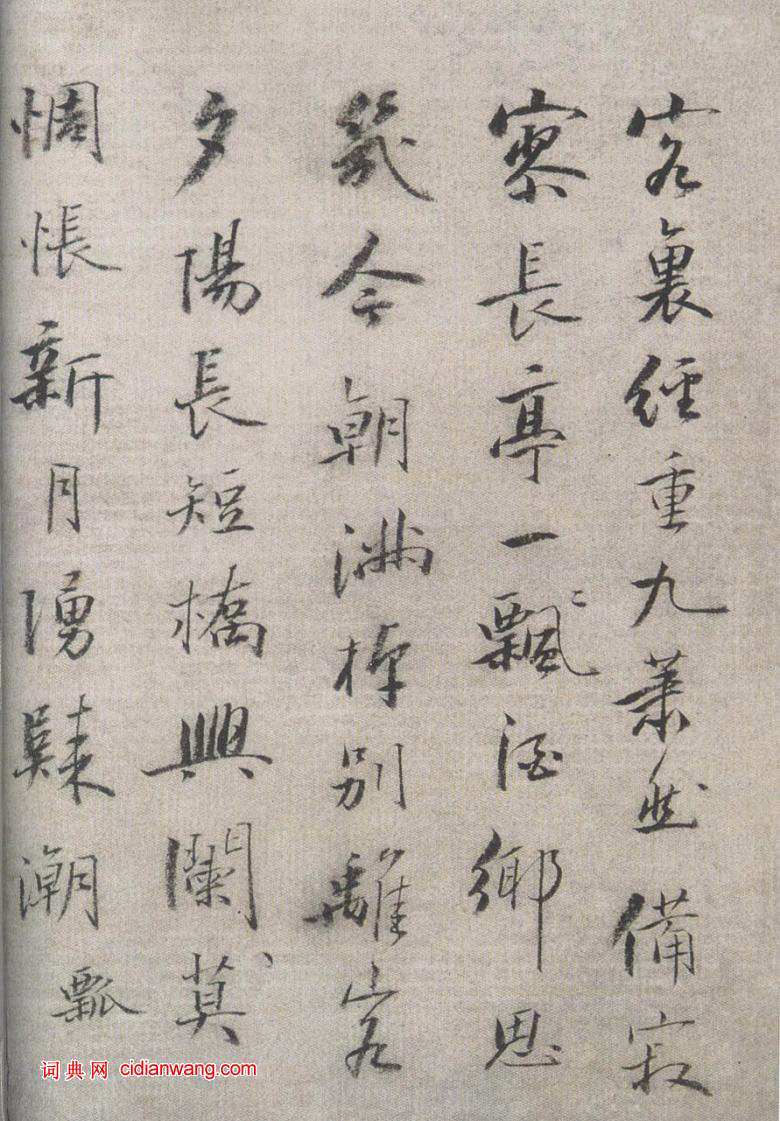 客裏經重九蕭然備寂
寥長亭一飄酒鄉思
幾今朝滿棹別離客
夕陽長短橋興闌莫
惆悵新月湧疑潮 瓢
词典网 cidianwang.com